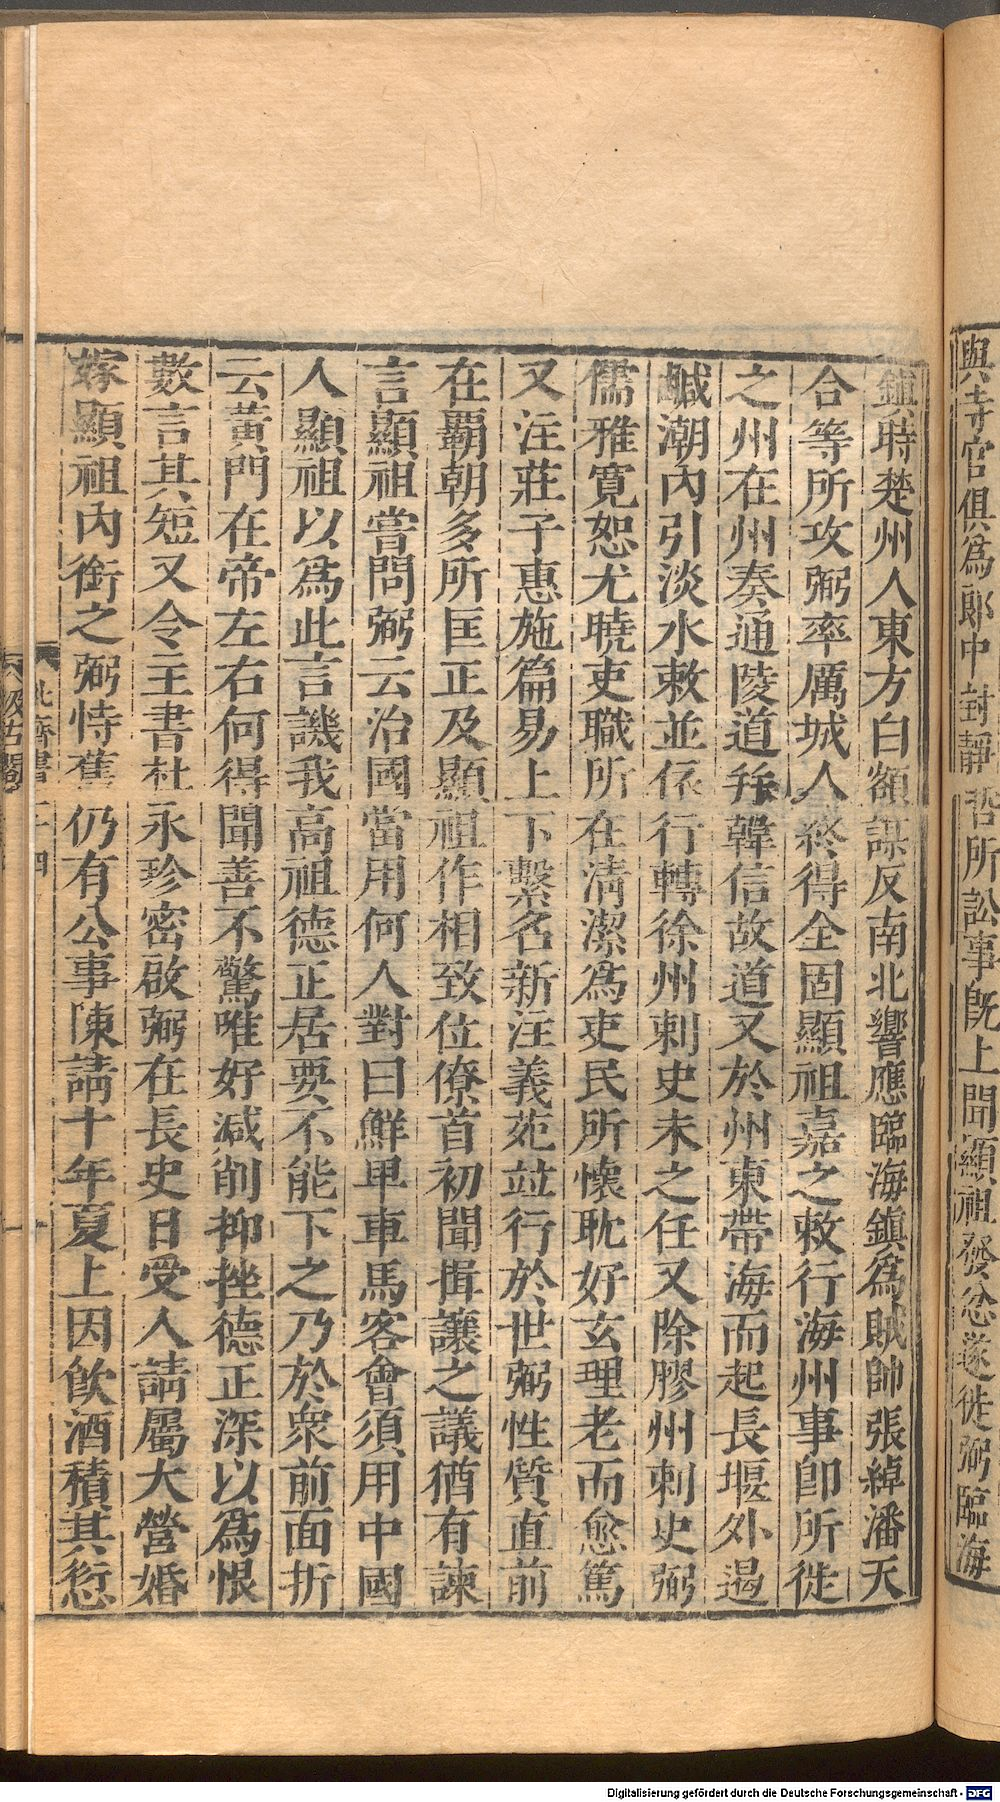 與寺官俱爲郎中封靜哲所訟事旣上聞顯祖發忿遂徙弼臨海
鎭時楚州人東方白額謀反南北響應臨海鎭爲賊帥張綽潘天
合等所攻弼率厲城人終得全固顯祖嘉之敕行海州事卽所徙
之州在州奏通陵道幷韓信故道又於州東帶海而起長堰外遏
鹹潮內引淡水敕並依行轉徐州刺史未之任又除膠州刺史弼
儒雅寬恕尤曉吏職所在清潔爲吏民所懷耽好玄理老而愈篤
又注莊子惠施篇易上下繫名新注義苑竝行於世弼性質直前
在霸朝多所匡正及顯祖作相致位僚首初聞揖讓之議猶有諫
言顯祖嘗問弼云治國當用何人對曰鮮卑車馬客會須用中國
人顯祖以爲此言譏我高祖德正居要不能下之乃於衆前面折
云黃門在帝左右何得聞善不驚唯好減削抑挫德正深以爲恨
數言其短又令主書杜永珍密啟弼在長史日受人請屬大營婚
嫁顯祖內銜之弼恃舊仍有公事陳請十年夏上因飮酒積其愆
北齊書二十四
汲古閣
Digitalisierung gefördert durch die Deutsche Forschungsgemeinschaft - DFG